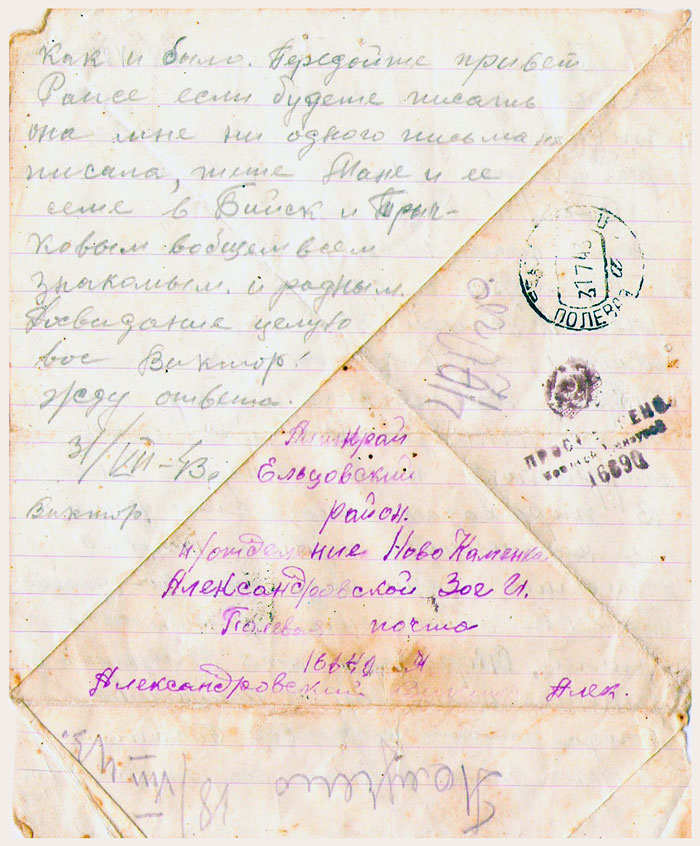 как и было. Передойте привет
Раисе если будете писать
она мне ни одного письма не
писала, тоте Тане и ее
семе в Бийск и Трыч-
ковым вобщем всем
знакомым и родным.
Досвидание целую
вас Виктор!
жду ответа.
31/VII-43г
Виктор.
31 7 43
ПОЛЕВАЯ
ПРОСМОТРЕНО
Военной Цензурой
16690
Ельцовский
район.
п/отделение Ново Каменка
Александровской Зое И.
Полевая почта
Александровский Виктор Алек.
Получено
18/VIII 43.